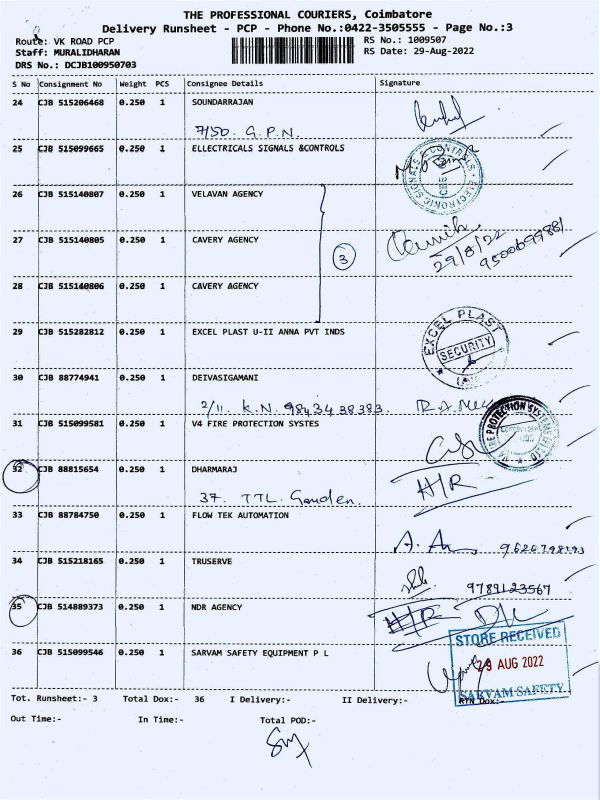 THE PROFESSIONAL COURIERS, Coimbatore
Delivery Runsheet - PCP - Phone No.:0422-3505555 - Page No.:3
Route: VK ROAD PCP
RS No.: 1009507
Staff: MURALIDHARAN
RS Date: 29-Aug-2022
DRS No.: DCJB100950703
S No Consignment No Weight PCS Consignee Details Signature
24 CJB 515206468 0.250 1 SOUNDARRAJAN
7/50. G.P.N.
25 CJB 515099665 0.250 1 ELLECTRICALS SIGNALS &CONTROLS
26 CJB 515140807 0.250 1 VELAVAN AGENCY
27 CJB 515140805 0.250 1 CAVERY AGENCY
3
29/8/22
28 CJB 515140806 0.250 1 CAVERY AGENCY
29 CJB 515282812 0.250 1 EXCEL PLAST U-II ANNA PVT INDS
EXCEL PLAST
SECURITY
30 CJB 88774941 0.250 1 DEIVASIGAMANI
2/11. K.N. 9843438383.
31 CJB 515099581 0.250 1 V4 FIRE PROTECTION SYSTES
32 CJB 88815654 0.250 1 DHARMARAJ
H/R
37. TTL. Garden.
33 CJB 88784750 0.250 1 FLOW TEK AUTOMATION
34 CJB 515218165 0.250 1 TRUSERVE
9789123567
35 CJB 514889373 0.250 1 NDR AGENCY
STORE RECEIVED
36 CJB 515099546 0.250 1 SARVAM SAFETY EQUIPMENT P L
29 AUG 2022
SARVAM SAFETY
Tot. Runsheet:- 3 Total Dox:- 36 I Delivery:- II Delivery:- RTN Dox:-
Out Time:- In Time:- Total POD:-